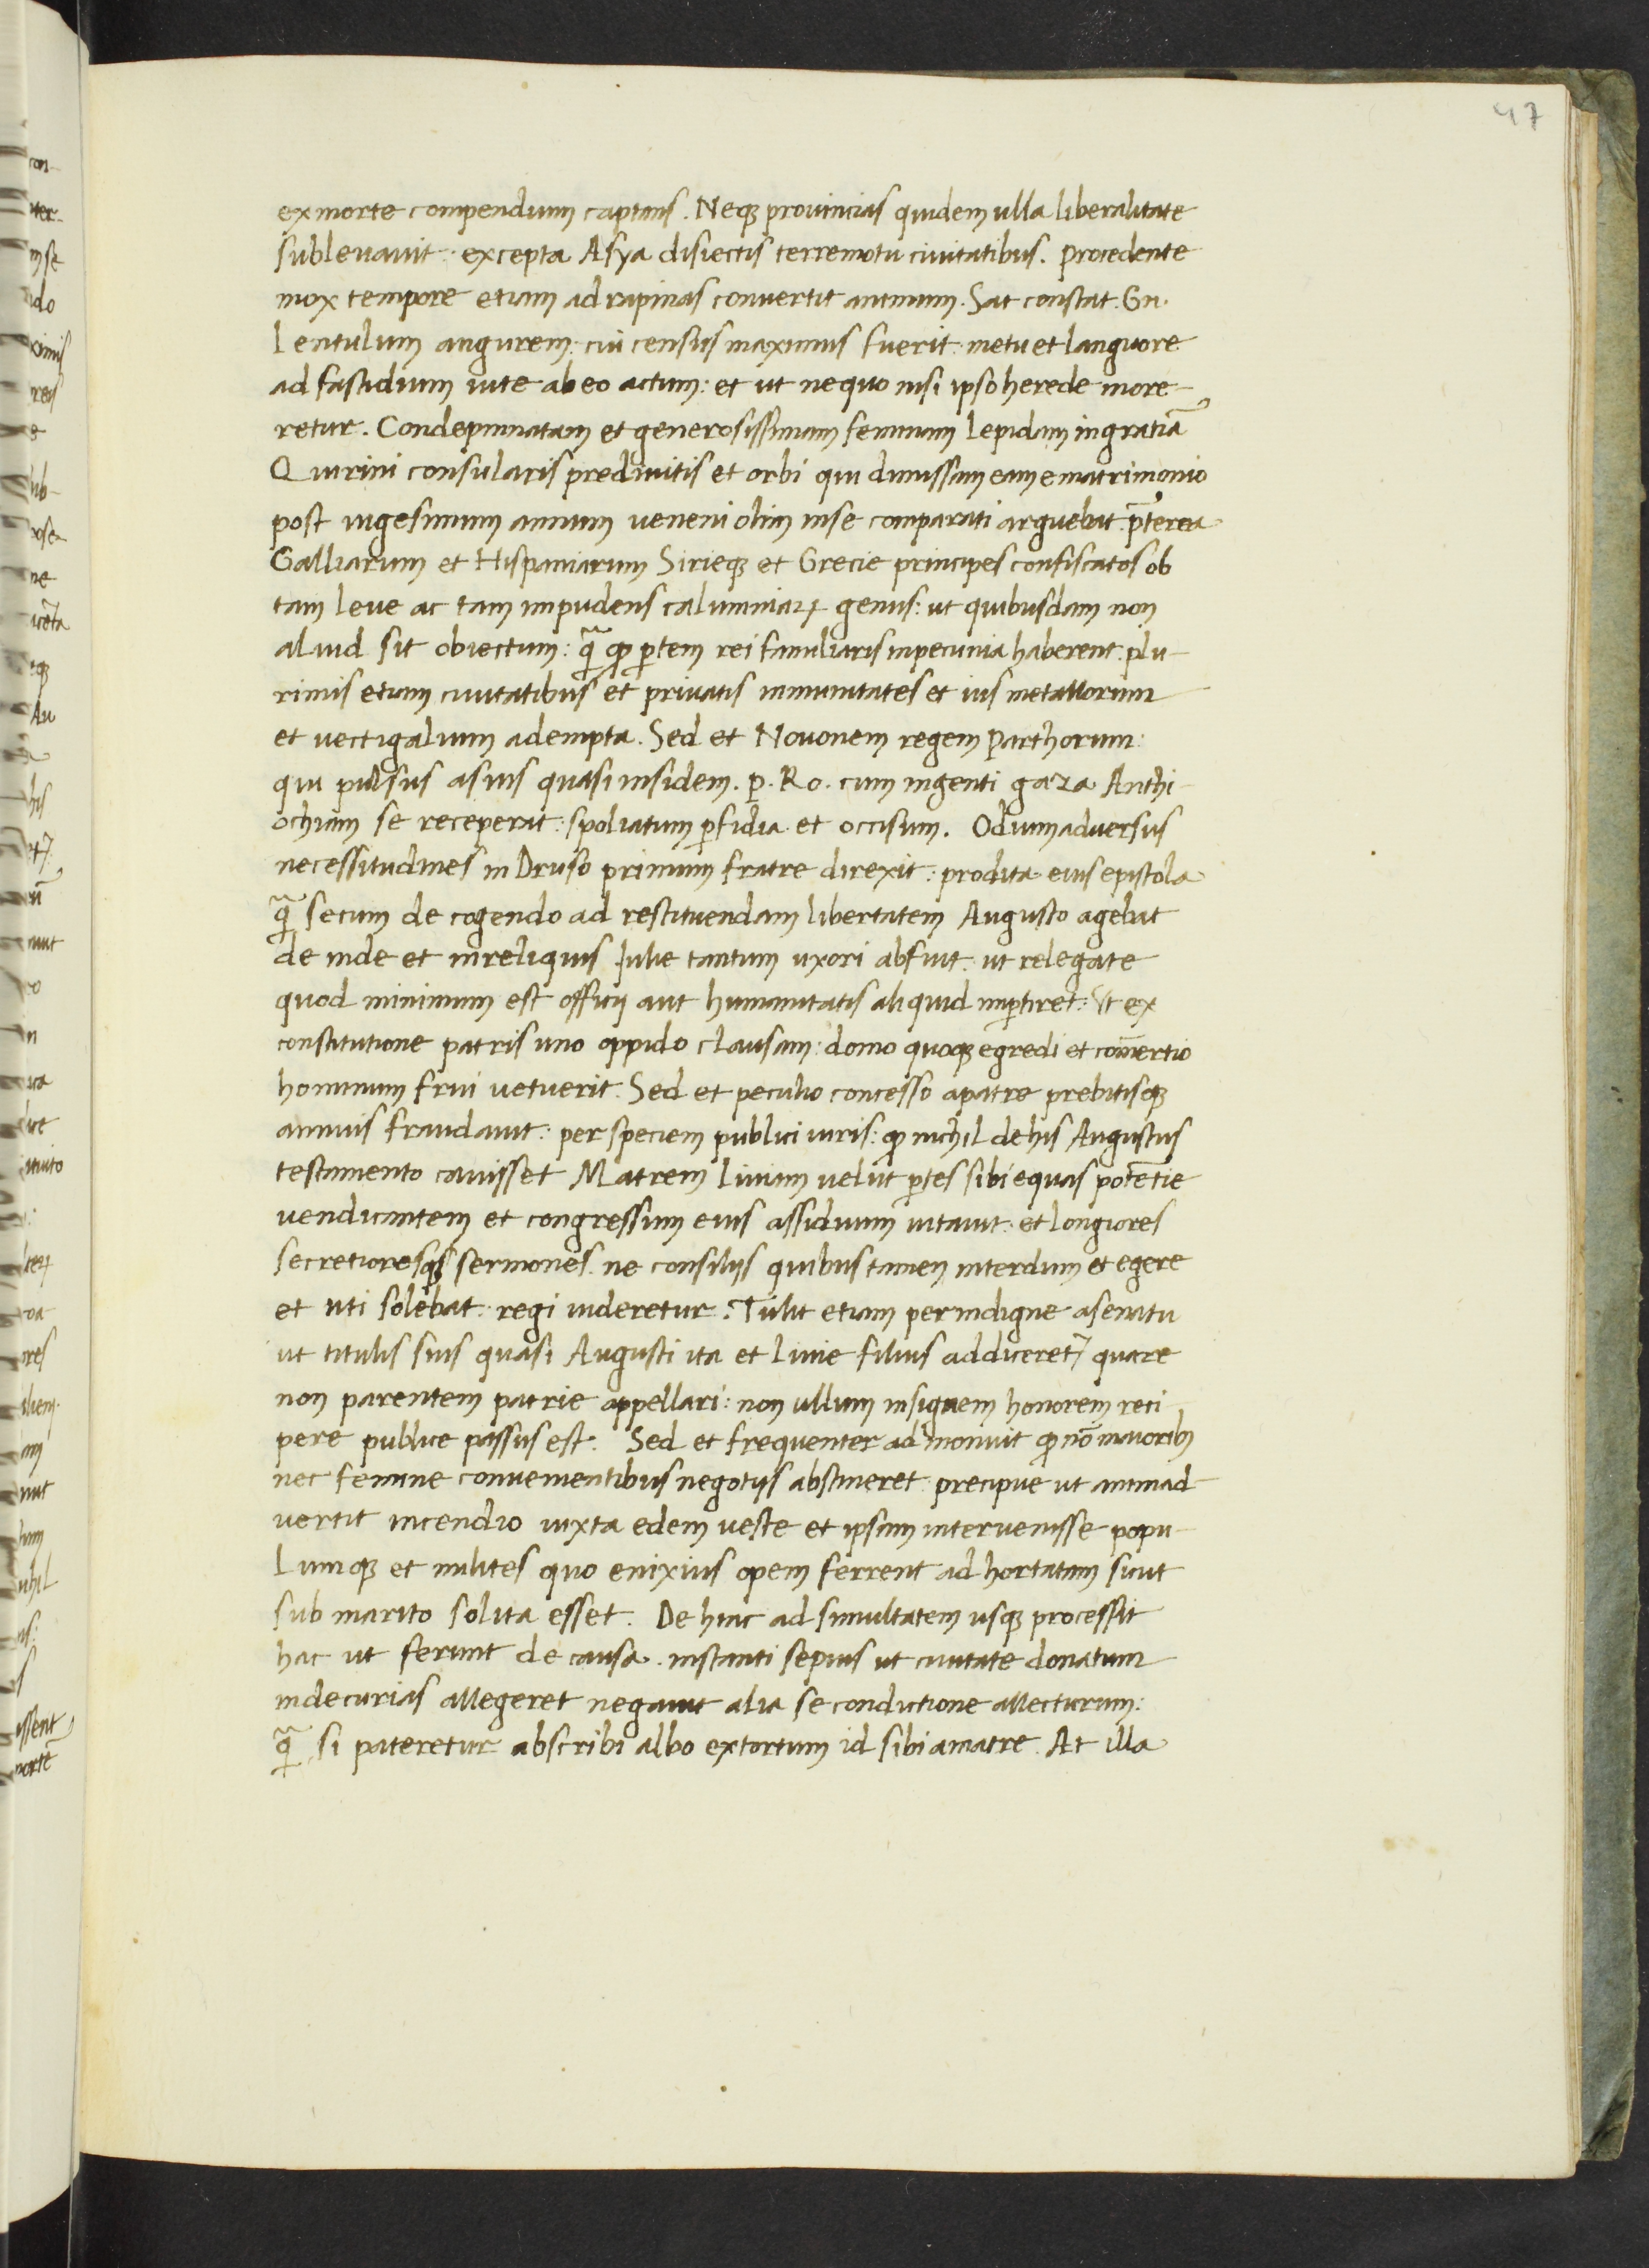 47
ex morte compendium captans. Neqꝫ provincias quidem ulla liberalitate
sublevavit: excepta Asya disiectis terremotu civitatibus. Procedente
mox tempore etiam ad rapinas convertit animum. Sat constat. Gn.
Lentulum augurem: cui census maximus fuerit: metu et languore
ad fastidium vite ab eo actum: et ut ne quo nisi ipso herede more-
retur. Condepmnatam et generosissimam feminam Lepidam in gratiā
Quirini consularis predivitis et orbi qui dimissam eam e matrimonio
post vigesimum annum veneni olim in se comparati arguebat. p̄terea
Galliarum et Hispaniarum Sirieqꝫ et Grecie principes confiscatos ob
tam leve ac tam impudens calumniaꝝ genus: ut quibusdam non
aliud sit obiectum: q̄ ꝙ ꝑtem rei familiaris in pecunia haberent. plu-
rimis etiam civitatibus et privatis immunitates et ius metallorum
et vectigalium adempta. Sed et Nononem regem Parthorum:
qui pulsus a suis quasi in fidem. p. Ro. cum ingenti gaza Anthi-
ochiam se receperat: spoliatum ꝑfidia et occisum. Odium adversus
necessitudines in Druso primum fratre direxit: prodita eius epistola
q̄ secum de cogendo ad restituendam libertatem Augusto agebat
de inde et in reliquis Julie tantum uxori abfuit. ut relegate
quod minimum est officij aut humanitatis aliquid imꝑtiret: Ut ex
constitutione patris uno oppido clausam: domo quoqꝫ egredi et com̄ertio
hominum frui vetuerit. Sed et peculio concesso a patre prebitisqꝫ
annuis fraudavit: per speciem publici iuris: ꝙ nichil de his Augustus
testamento cavisset Matrem Liviam velut ꝑtes sibi equas potētie
vendicantem et congressum eius assiduum vitavit: et longiores
secretioresqꝫ sermones. ne consilijs quibus tamen interdum et egere
et uti solebat: regi videretur. Tulit etiam perindigne a senatu
ut titulis suis quasi Augusti ita et Livie filius addiceretꝰ quare
non parentem patrie appellari: non ullum insignem honorem reci-
pere publice passus est. Sed et frequenter admonuit ꝙ nō maioribꝫ
nec femine convenientibus negotijs abstineret. precipue ut animad-
vertit incendio iuxta edem veste et ipsam intervenisse popu-
lumqꝫ et milites quo enixius opem ferrent adhortatam sicut
sub marito solita esset. De hinc ad simultatem usqꝫ processit
hac ut ferunt de causa. instanti sepius ut civitate donatum
in decurias allegeret negavit alia se condictione allecturum:
q̄ si pateretur abscribi albo extortum id sibi a matre. At illa